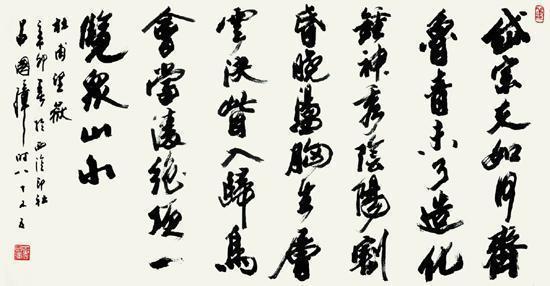 岱宗夫如何齊
魯青未了造化
鍾神秀陰陽割
昏曉盪胸生層
雲決眥入歸鳥
會當凌絕頂一
覽眾山小
杜甫望嶽
辛卯春於西泠印社
呂國璋時八十又五